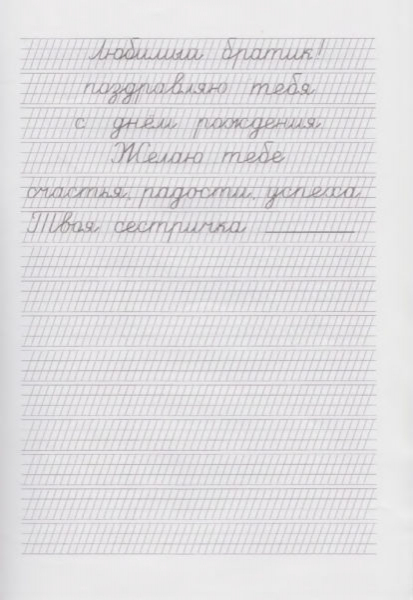 Любимый братик!
поздравляю тебя
с днём рождения.
Желаю тебе
счастья, радости, успеха
Твоя сестричка